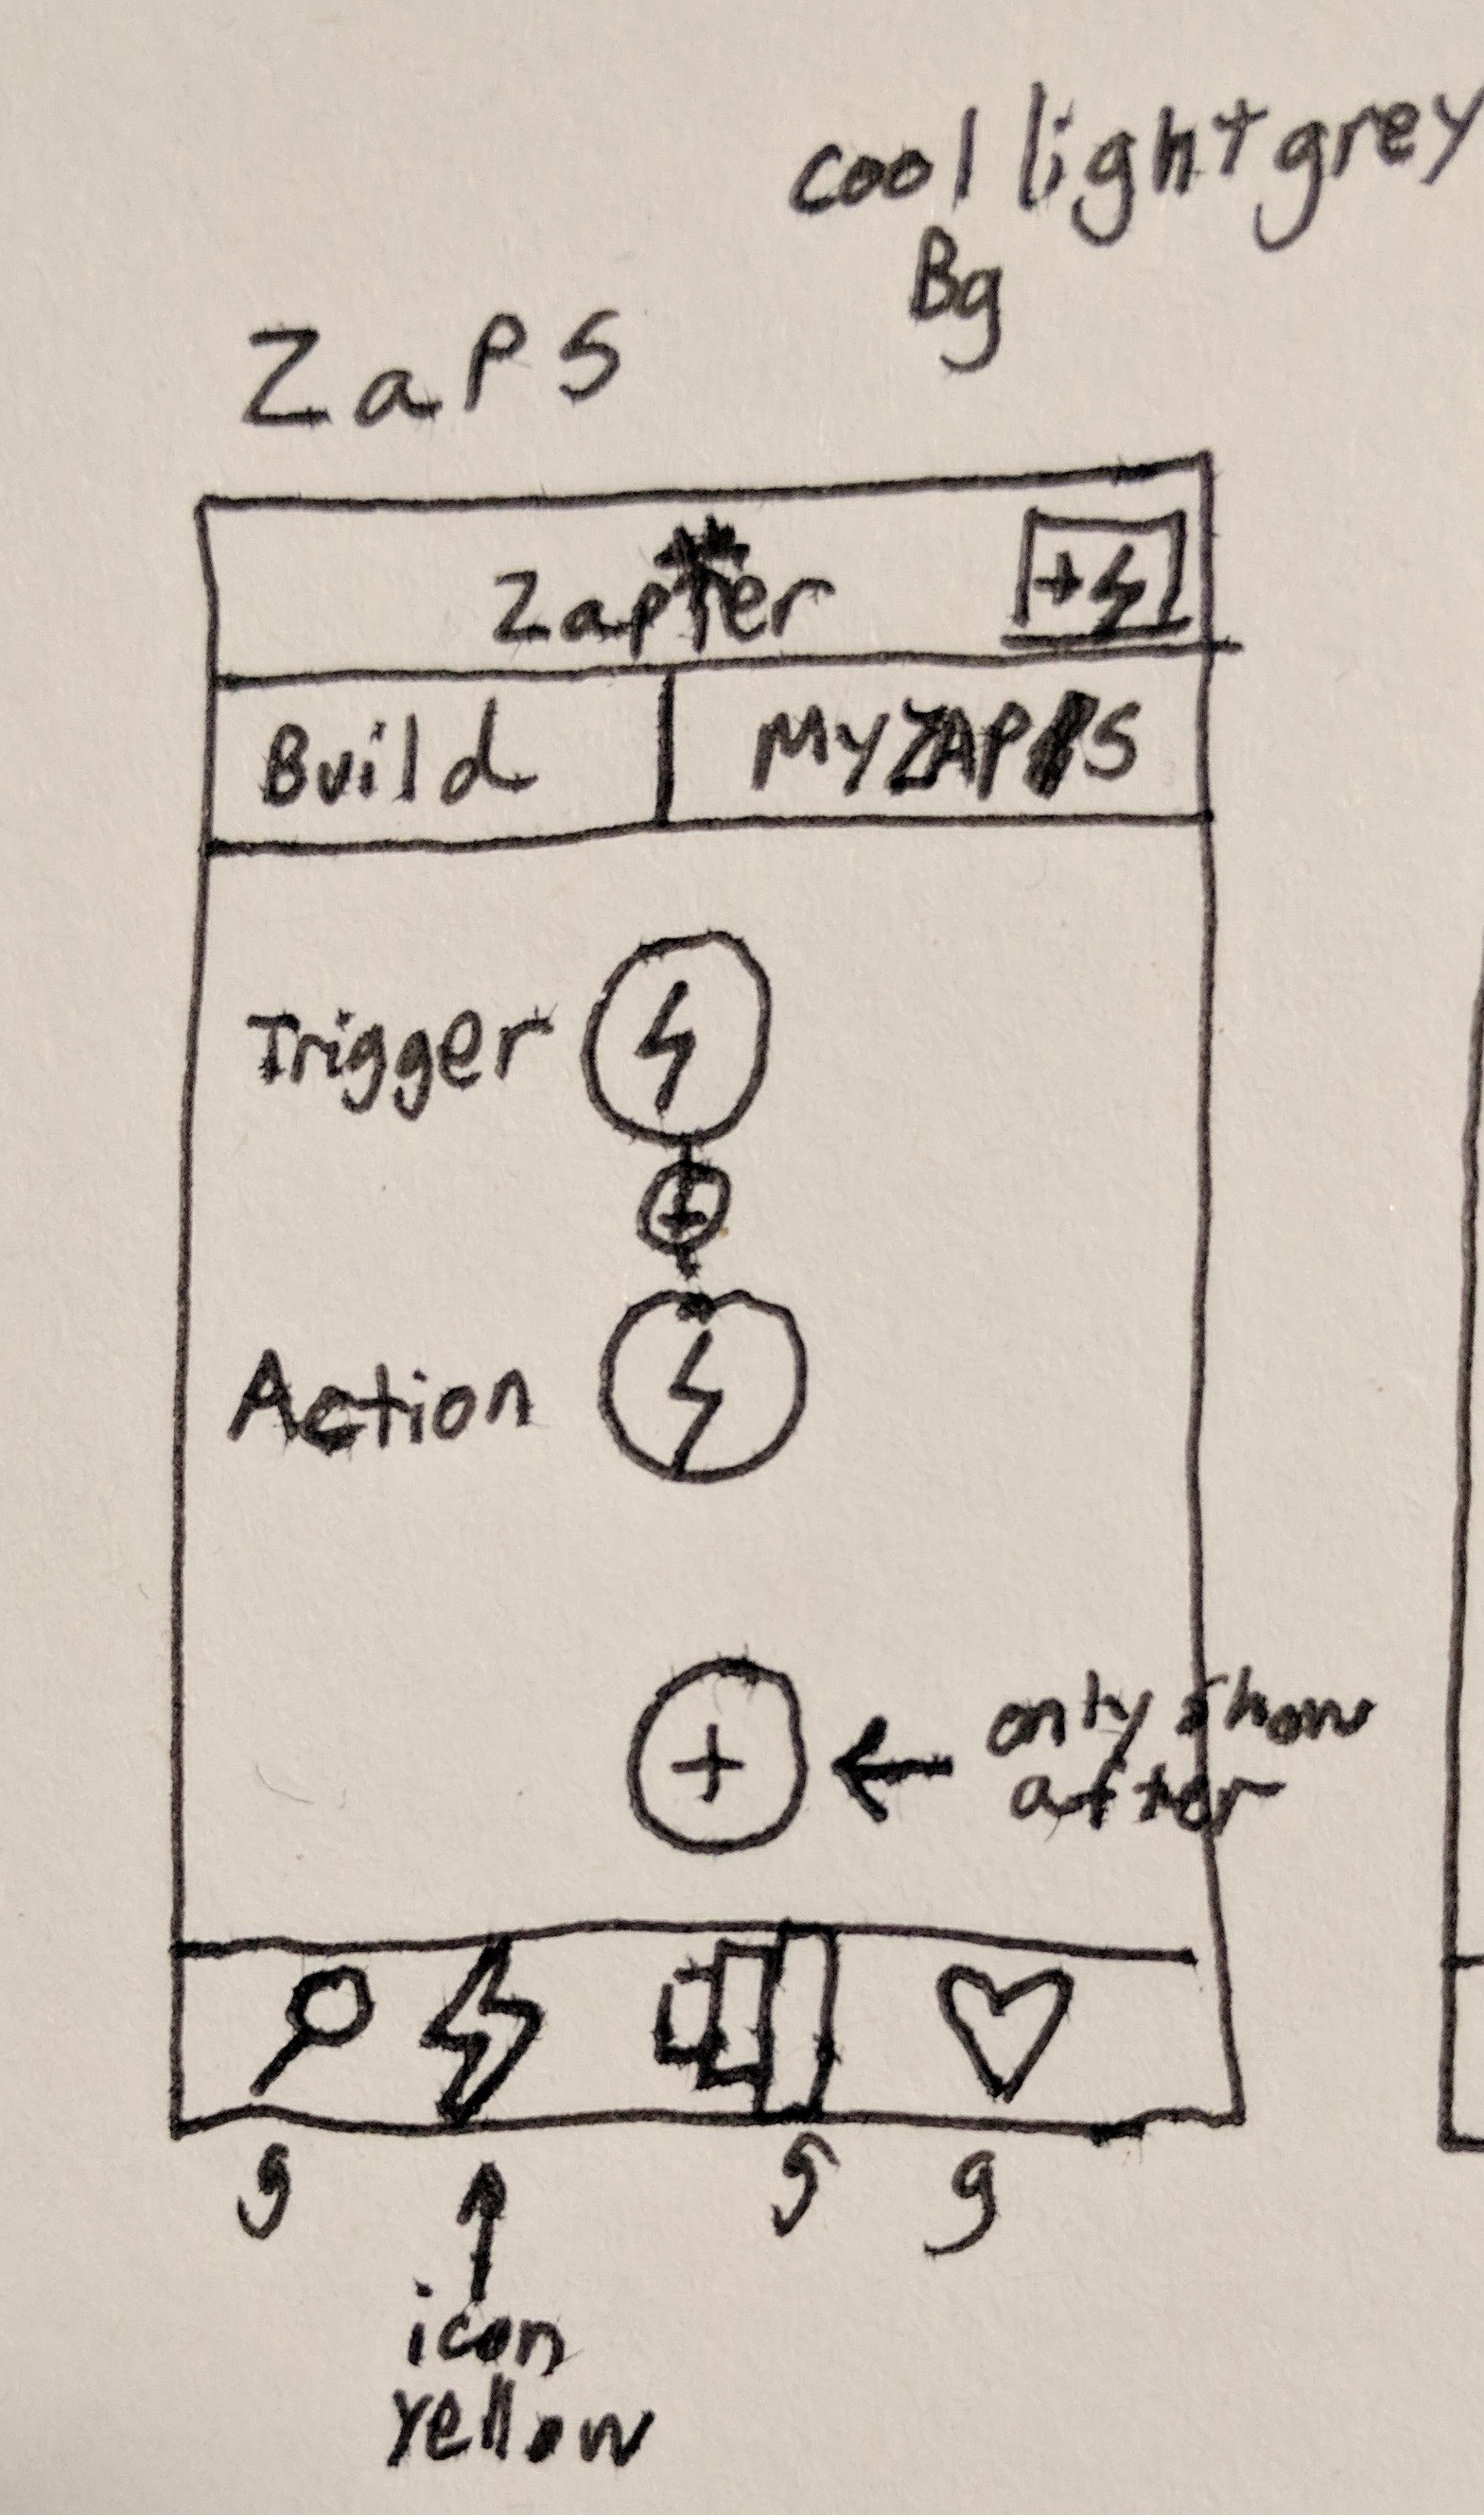 cool light grey
Bg
ZaPS
Zapier
+
Build
MYZAPS
Trigger
+
Action
+
only show
after
g
g
g
icon
yellow